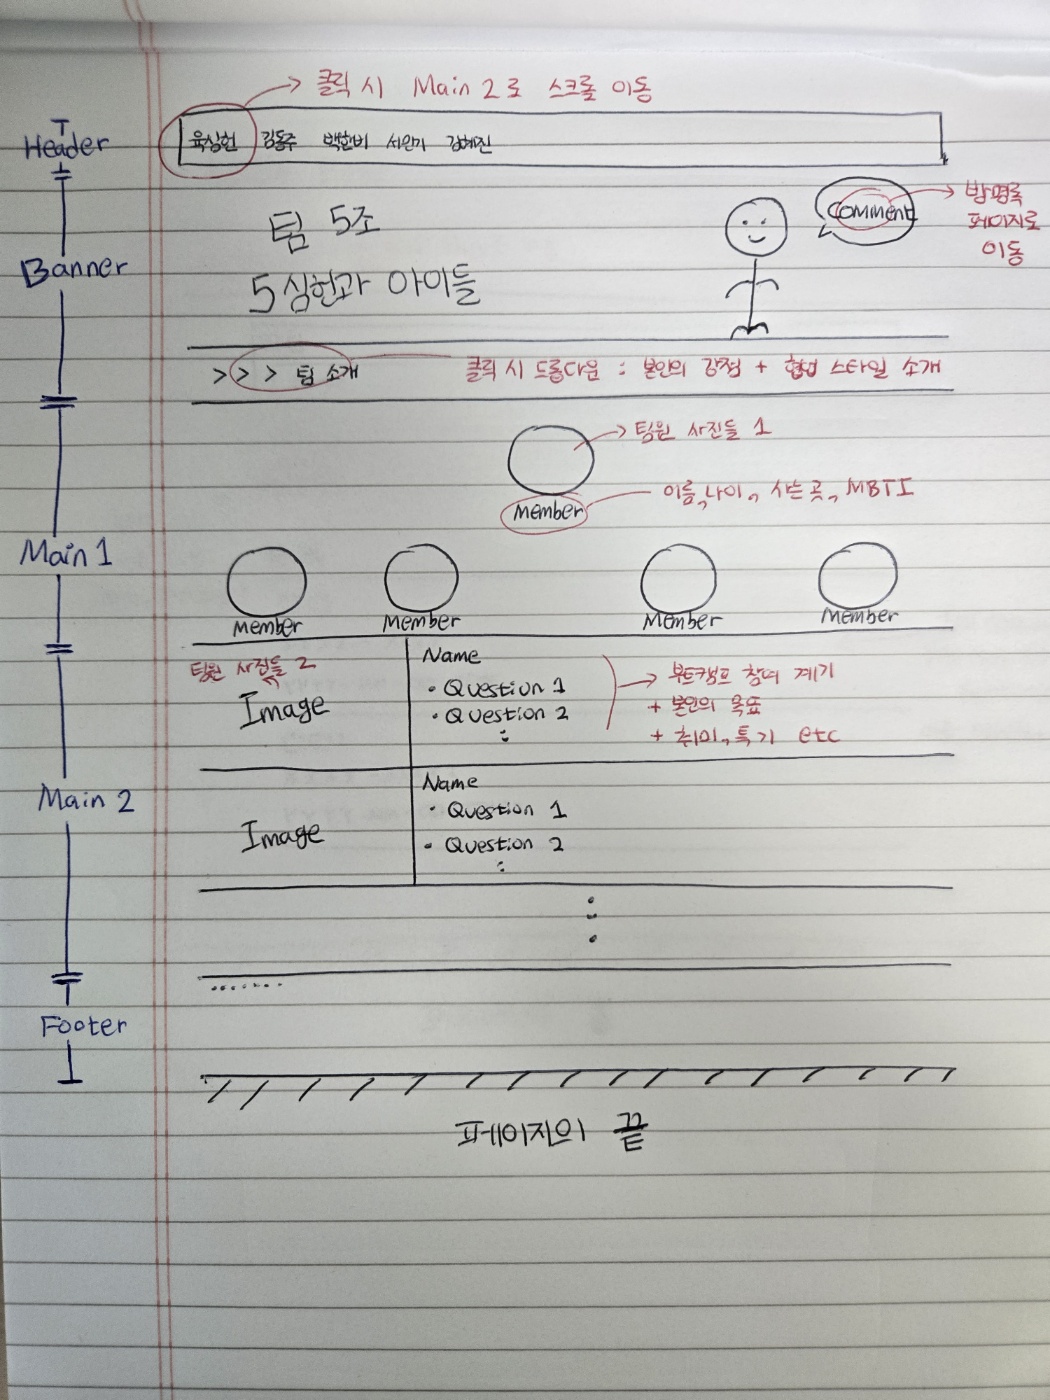 클릭 시 Main 2로 스크롤 이동
Header
육상헌 김동주 백한비 서완미 김혜진
Comment
방명록
페이지로
이동
팀 5조
Banner
5심헌과 아이들
>>> 팀 소개
클릭 시 드롭다운 : 본인의 강점 + 협업 스타일 소개
팀원 사진들 1
Member
이름, 나이, 사는 곳, MBTI
Main 1
Member Member Member Member
팀원 사진들 2
Image
Name
• Question 1
• Question 2
:
부트캠프 참여 계기
+ 본인의 목표
+ 취미, 특기 etc
Main 2
Image
Name
• Question 1
• Question 2
:
Footer
페이지의 끝